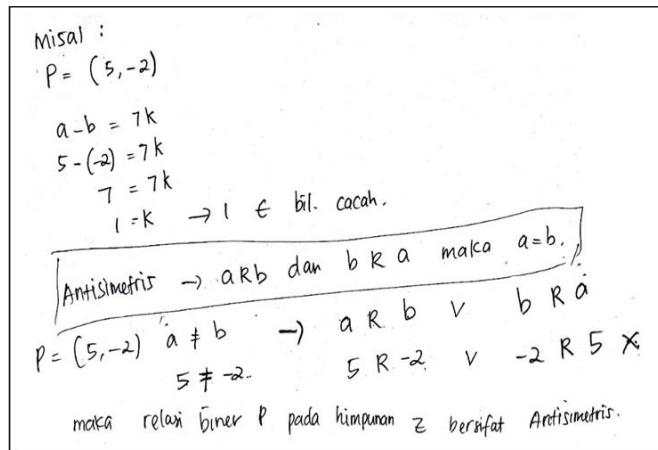 Misal :
P = (5,-2)
a-b = 7k
5-(-2) = 7k
7 = 7k
1 = k → 1 ∈ bil. cacah.
Antisimetris → aRb dan bRa maka a=b.
P = (5,-2) a ≠ b → a R b v b R a
5 ≠ -2. 5 R -2 v -2 R 5 ×
maka relasi biner P pada himpunan Z bersifat Antisimetris.